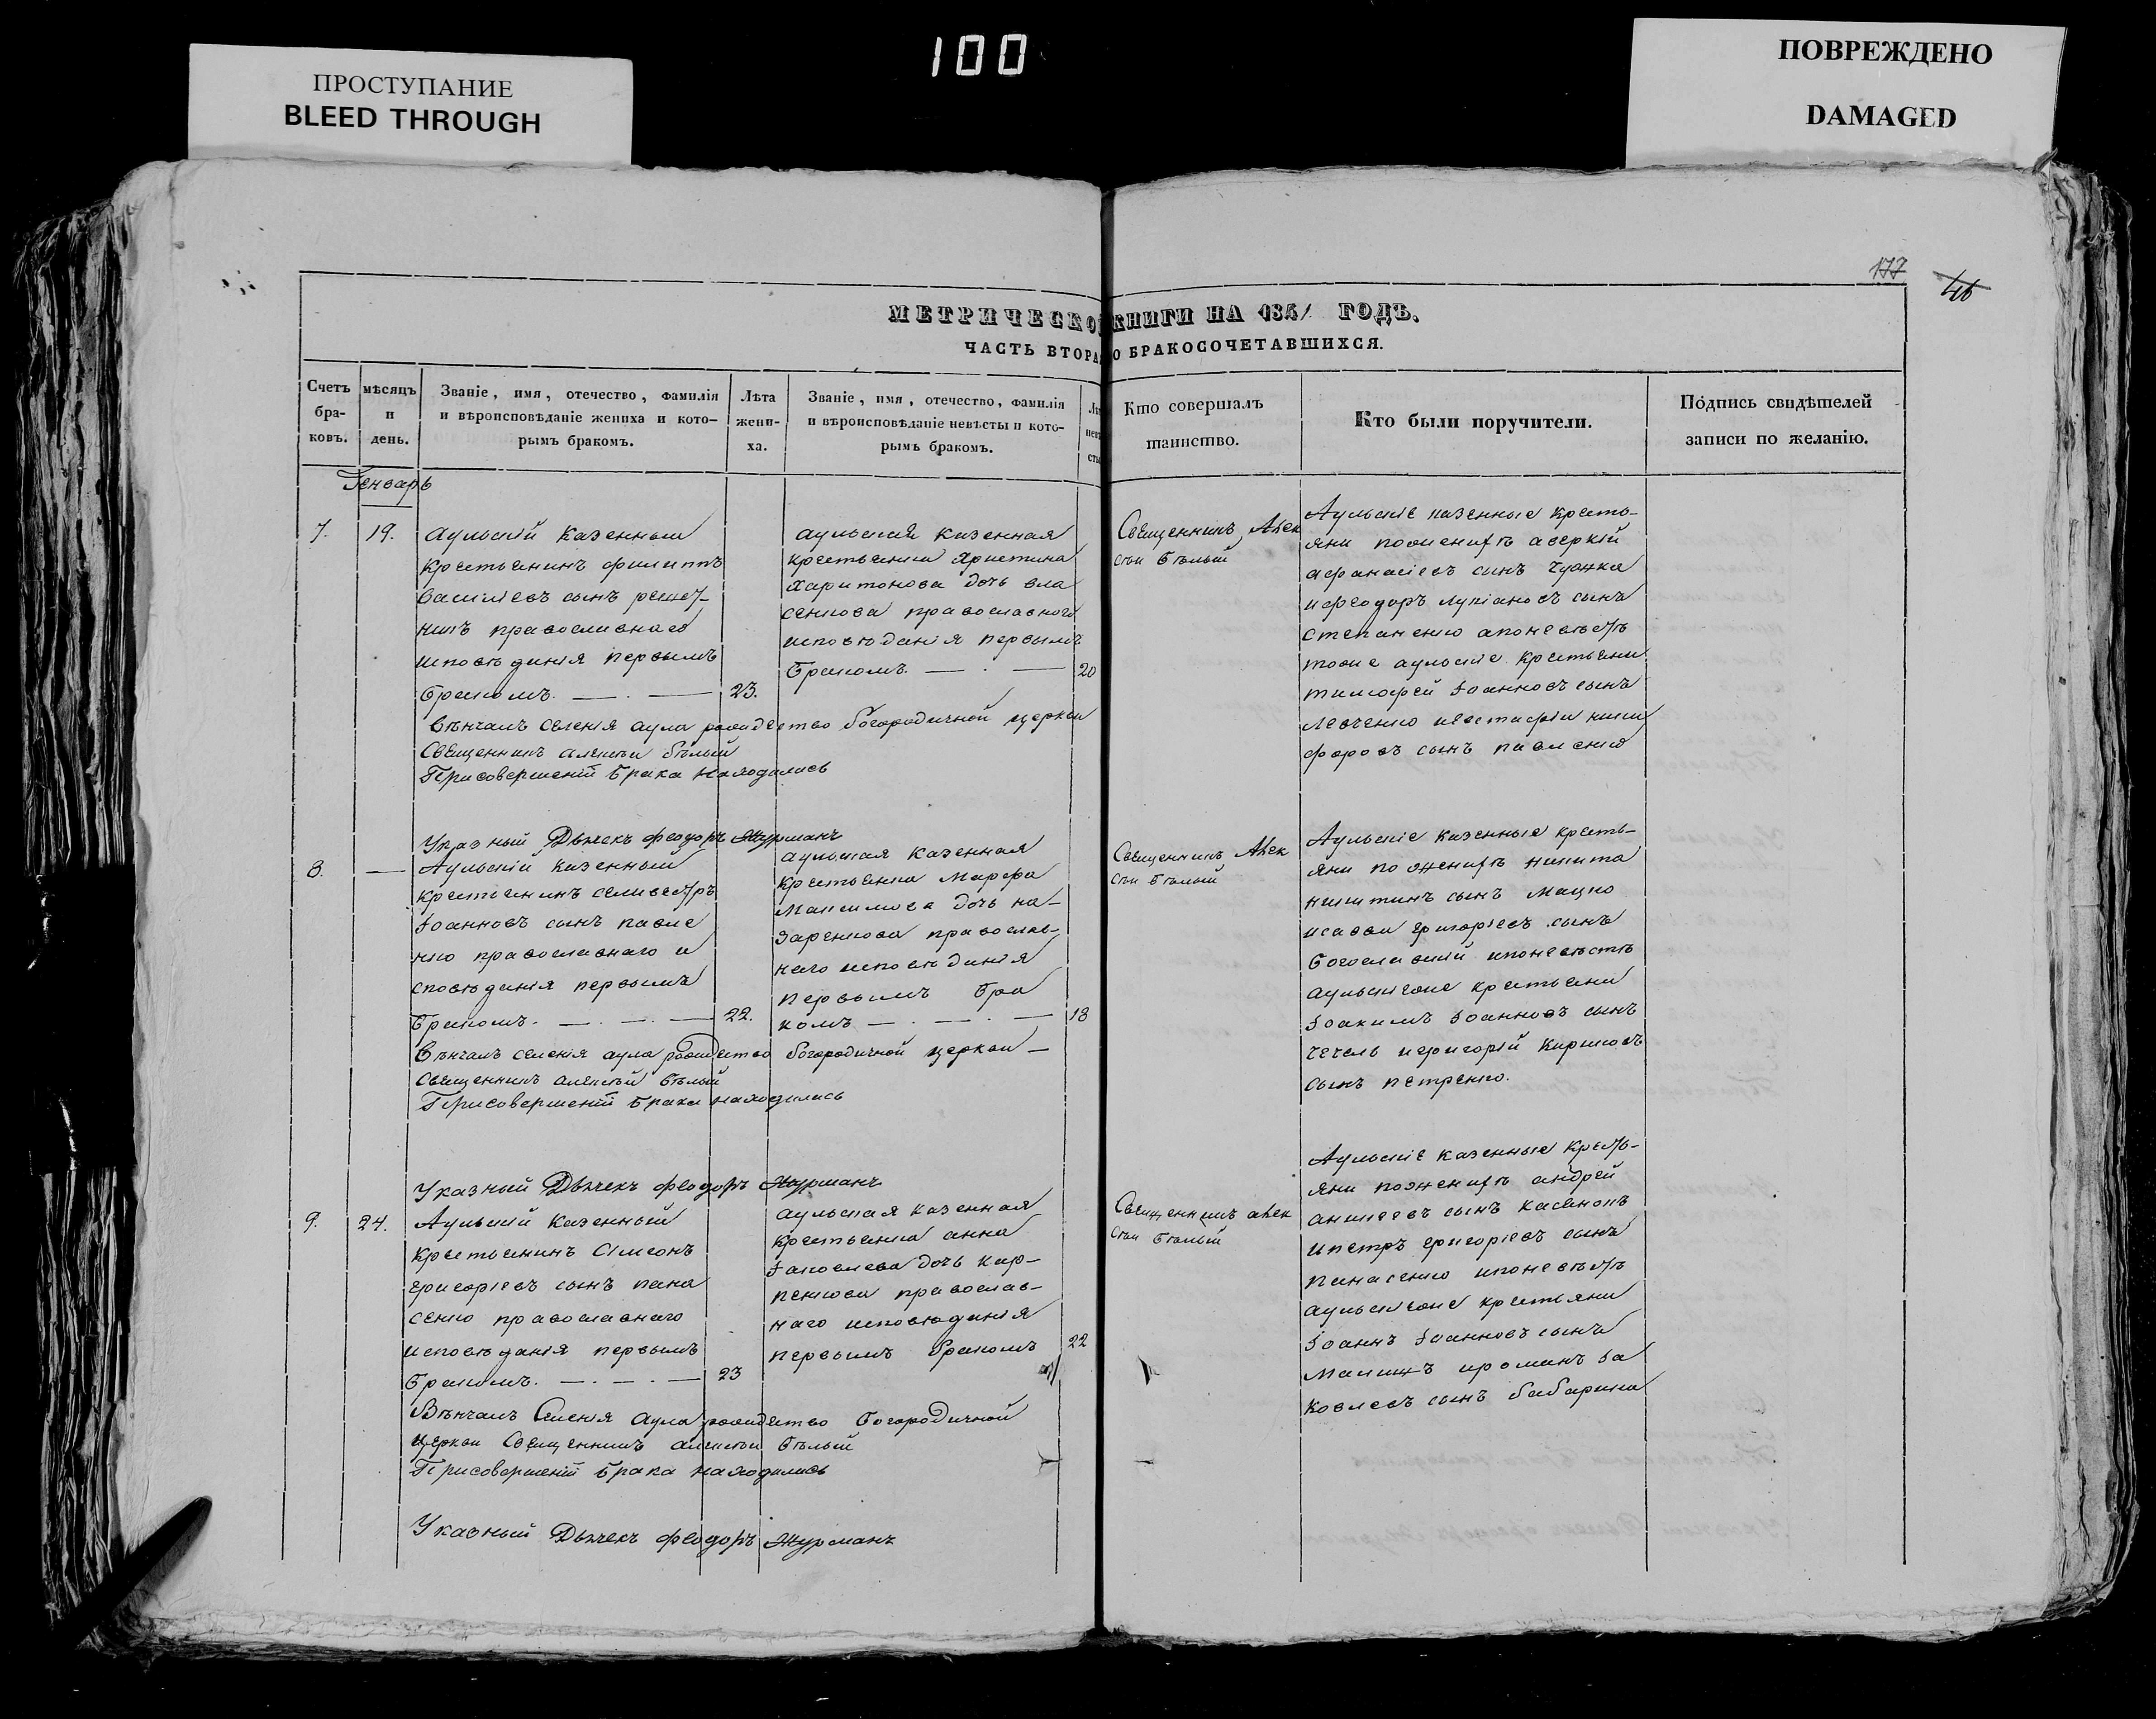 100
ПРОСТУПАНИЕ
BLEED THROUGH
ПОВРЕЖДЕНО
DAMAGED
177
46
МЕТРИЧЕСКО КНИГИ НА 1851 ГОДЪ.
ЧАСТЬ ВТОРА О БРАКОСОЧЕТАВШИХСЯ.
Счетъ бра-ковъ.
мѣсяцъ и день.
Званіе, имя, отечество, фамилія
и вѣроисповѣданіе жениха и кото-
рымъ бракомъ.
Лѣта жени-ха.
Званіе, имя, отечество, фамилія
и вѣроисповѣданіе невѣсты и кото-
рымъ бракомъ.
Кто совершалъ
таинство.
Кто были поручители.
Подпись свидѣтелей
записи по желанію.
Генварь
7. 19.
Аульскій казенный
крестьянинъ филиппъ
василіевъ сынъ
никъ православнаго
исповѣданія первымъ
бракомъ. 23.
аульская казенная
крестьянка Христина
Харитонова дочь вла
сенкова православнаго
исповѣданія первымъ
бракомъ 20
Священникъ Алек
сѣи бѣлый
Аульскіе казенные кресть-
яни по женихѣ аверкій
афанасіевъ сынъ
ифеодоръ лукіановъ сынъ
степаненко апоневѣстѣ
тоже аульскіе крестьяни
тимофей Іоанновъ сынъ
левченко иевстафіи ники
форовъ сынъ павленко
вѣнчалъ селенія аула рождество богородичной церкви
священникъ алексѣи бѣлый
Присовершеніи брака находились
Указный Дьячекъ феодоръ Журманъ
8. —
Аульскій казенный
крестьянинъ селивестръ
Іоанновъ сынъ павле
нко православнаго и
сповѣданія первымъ
бракомъ. 22.
аульская казенная
крестьянка Марфа
Максимова дочь на-
заренкова православ-
наго исповѣданія
первымъ бра
комъ 18
Священникъ Алек
сѣи бѣлый
Аульскіе казенные кресть-
яни по женихѣ никита
никитинъ сынъ Мацко
исавва григоріевъ сынъ
богославскій ипоневѣстѣ
аульскіеже крестьяни
Іоакимъ Іоанновъ сынъ
чечель игригорій кириловъ
сынъ петренко.
вѣнчалъ селенія аула рождество богородичной церкви —
священникъ алексѣй бѣлый
Присовершеніи брака находились
Указный Дьячекъ феодоръ Журманъ
9. 24.
Аульскій казенный
крестьянинъ Симеонъ
григоріевъ сынъ пана
сенко православнаго
исповѣданія первымъ
бракомъ. 23
аульская казенная
крестьянка анна
Іаковлева дочь кар-
пенкова православ-
наго исповѣданія
первымъ бракомъ 22
Священникъ алек
сѣи бѣлый
Аульскіе казенные кресть-
яни по женихѣ андрей
аникеевъ сынъ касянокъ
ипетръ григоріевъ сынъ
панасенко ипоневѣстѣ
аульскіеже крестьяни
Іоаннъ Іоанновъ сынъ
ироманъ Іа
ковлевъ сынъ бабарика
Вѣнчалъ Селенія аула рождество богородичной
церкви Священникъ алексѣи бѣлый
Присовершеніи брака находились
Указный Дьячекъ феодоръ Журманъ